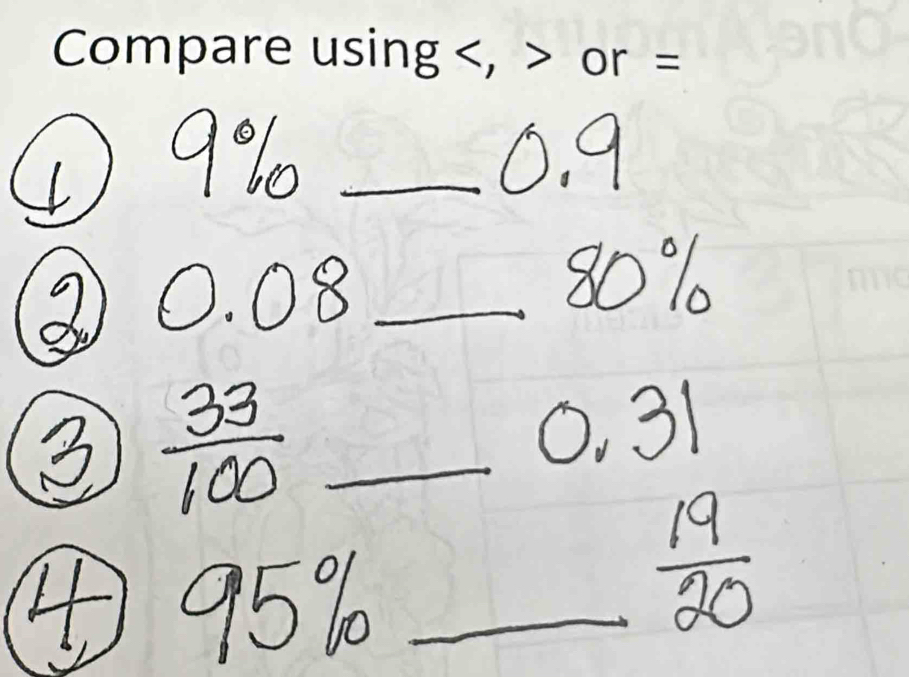 Compare using <, > or =
① 9% ___ 0.9
② 0.08 ___ 80%
③ 33/100 ___ 0.31
④ 95% ___ 19/20